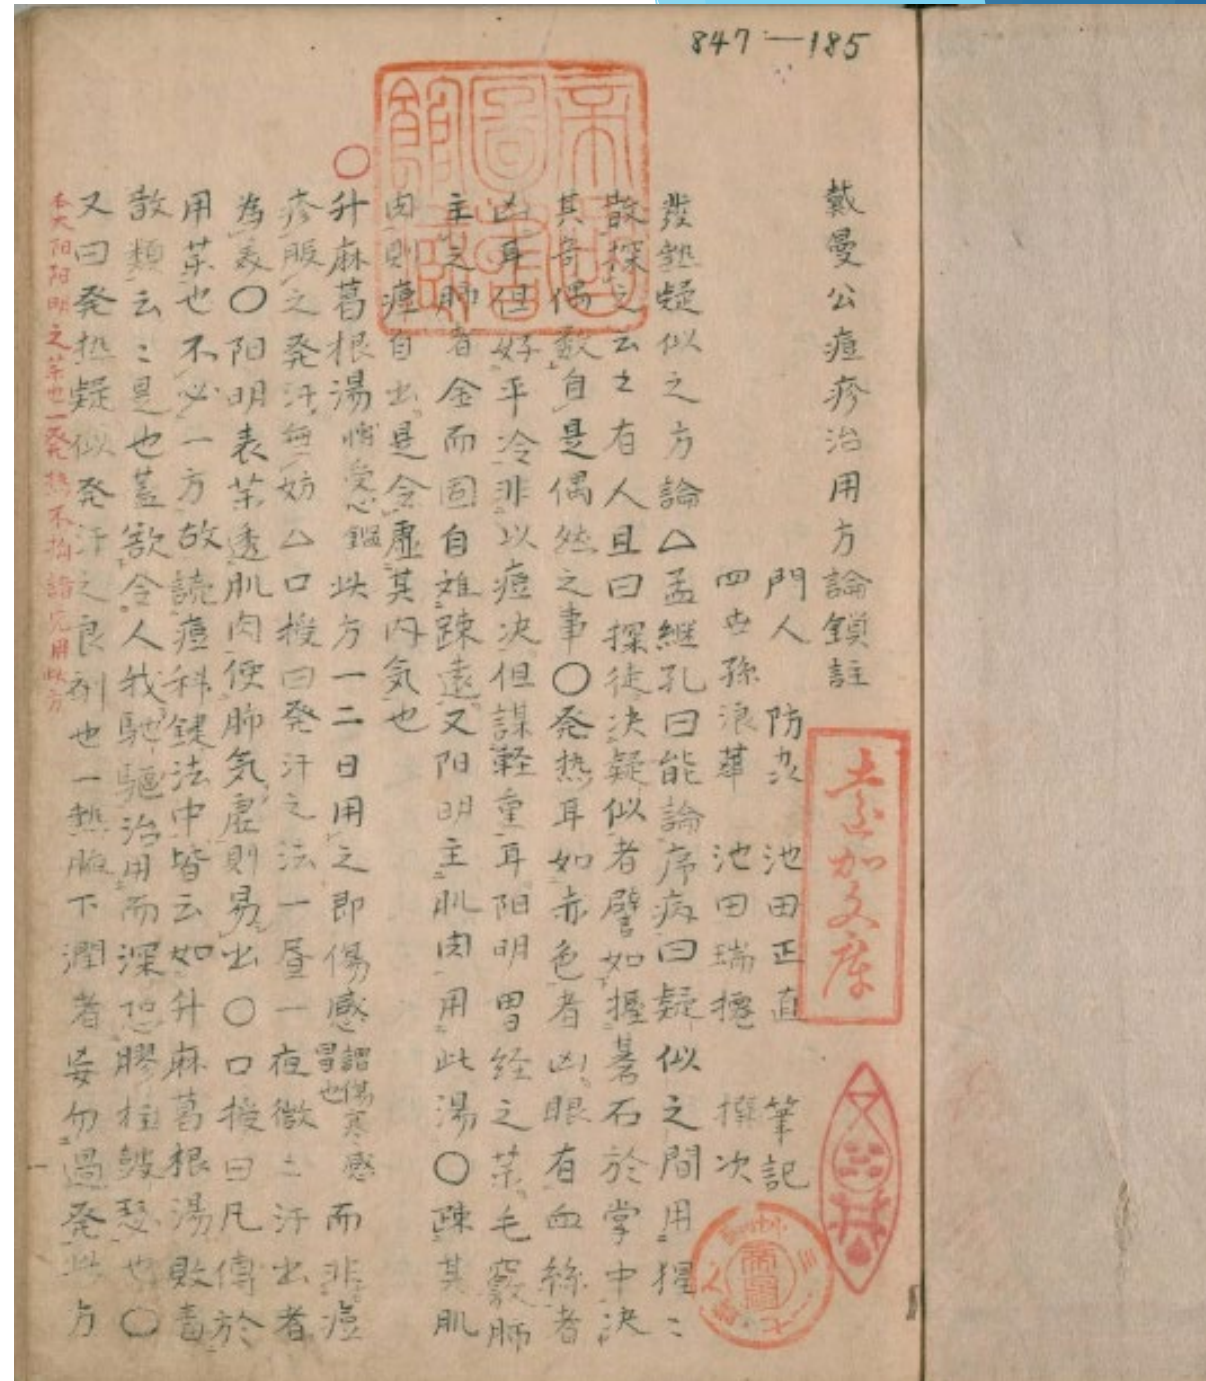 847-185
戴曼公痘疹治用方論鎖註
門人 防汝 池田正直 筆記
四世孫 浪華 池田瑞 撰次
発熱疑似之方論△孟継孔曰能論序病曰疑似之間用猩〻
散探之云〻有人且曰探徒決疑似者譬如握碁石於掌中決
其奇偶数自是偶然之事〇発热耳如赤色者凶眼有血絲者
凶耳但好平冷非以痘決但謀軽重耳阳明胃経之薬毛竅肺
主之肺者金而固自雖踈遠又阳明主肌肉用此湯〇踈其肌
肉則痘自出是令虚其内気也
升麻葛根湯 此方一二日用之即傷感謂傷寒感冒也而非痘
疹服之発汗無妨△口授曰発汗之法一昼一夜微〻汗出者
為表〇阳明表薬透肌肉使肺気虚則易出〇口授曰凡傳於
用薬也不必一方故読痘科鍵法中皆云如升麻葛根湯敗毒
散類云〻是也蓋欲令人我馳驅治用而深恐膠柱皷瑟也〇
又曰発热疑似発汗之良剤也一热服下潤者妄勿過発此方
本大阳阳明之薬也一発热不拘諸 用此方
帝国図書館蔵